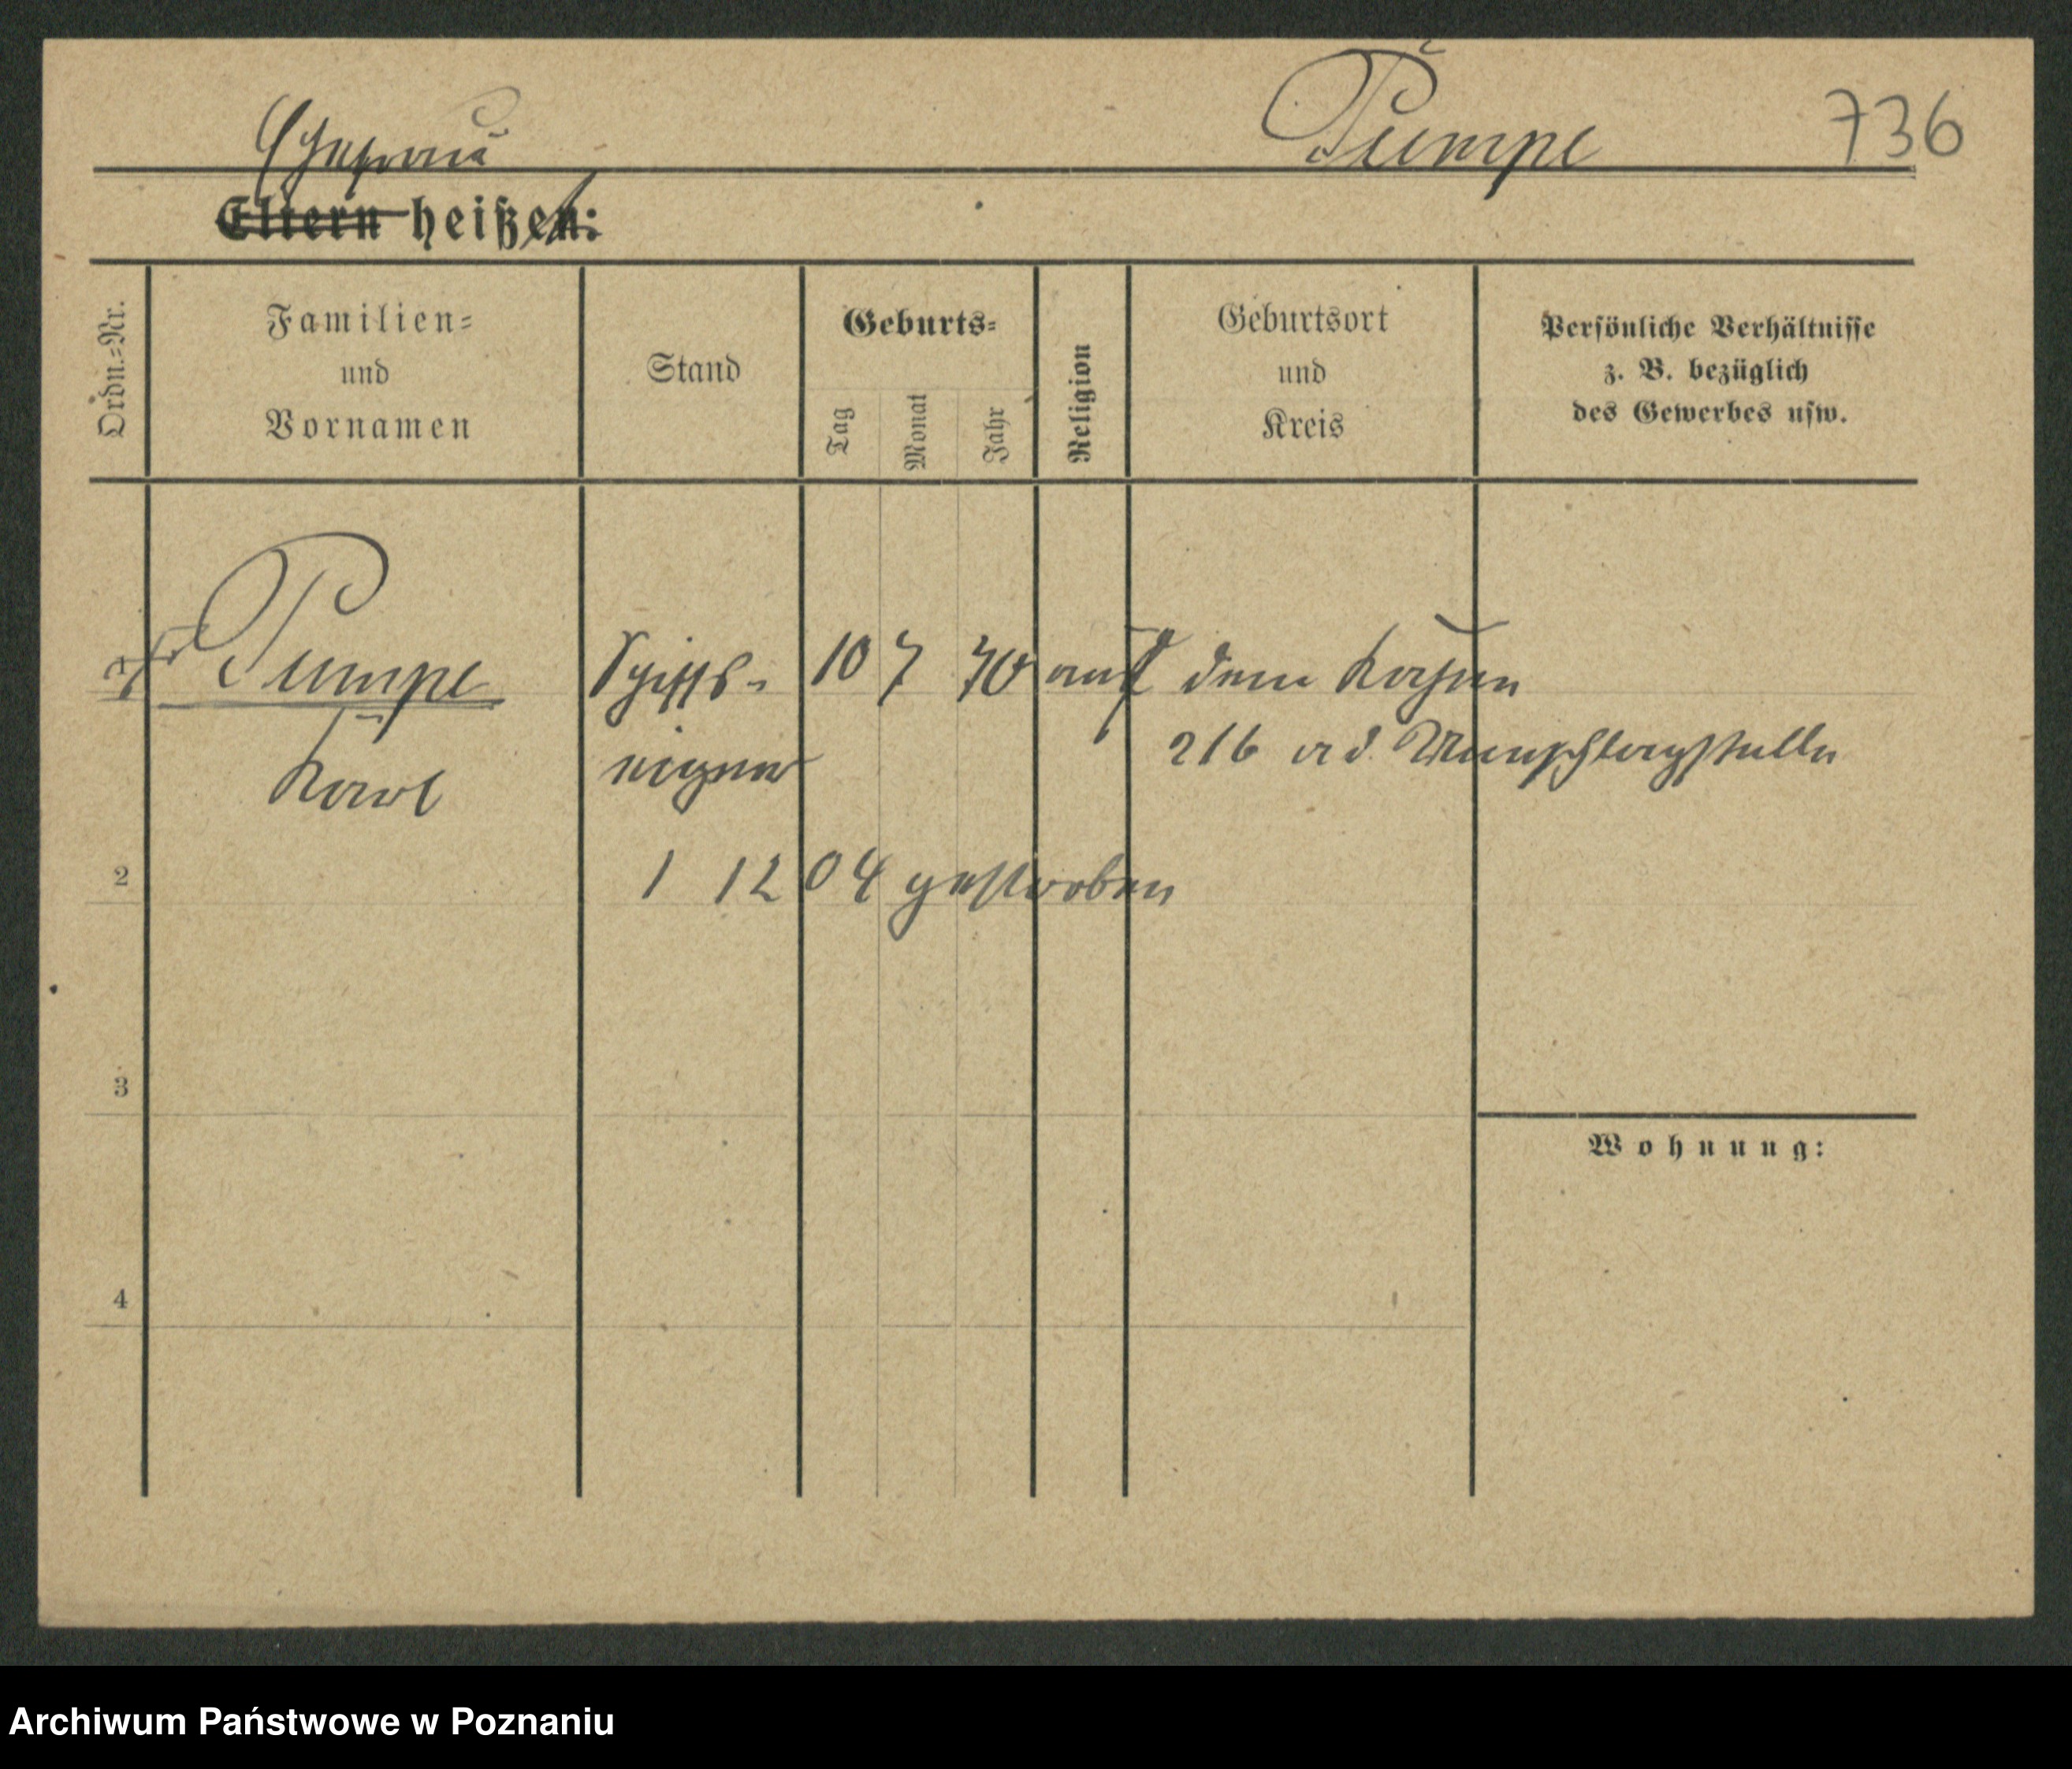 Ehefrau Pumpe 736
Eltern heißen:
Ordn.=Nr.
Familien=
und
Vornamen
Stand
Geburts=
Tag
Monat
Jahr
Religion
Geburtsort
und
Kreis
Persönliche Verhältnisse
z. B. bezüglich
des Gewerbes usw.
Pumpe Schiffs- 10 7 70 auf dem Kahn
Karl eigner 216 a d. Umschlagstelle
2 1 12 04 gestorben
3
Wohnung:
4
Archiwum Państwowe w Poznaniu